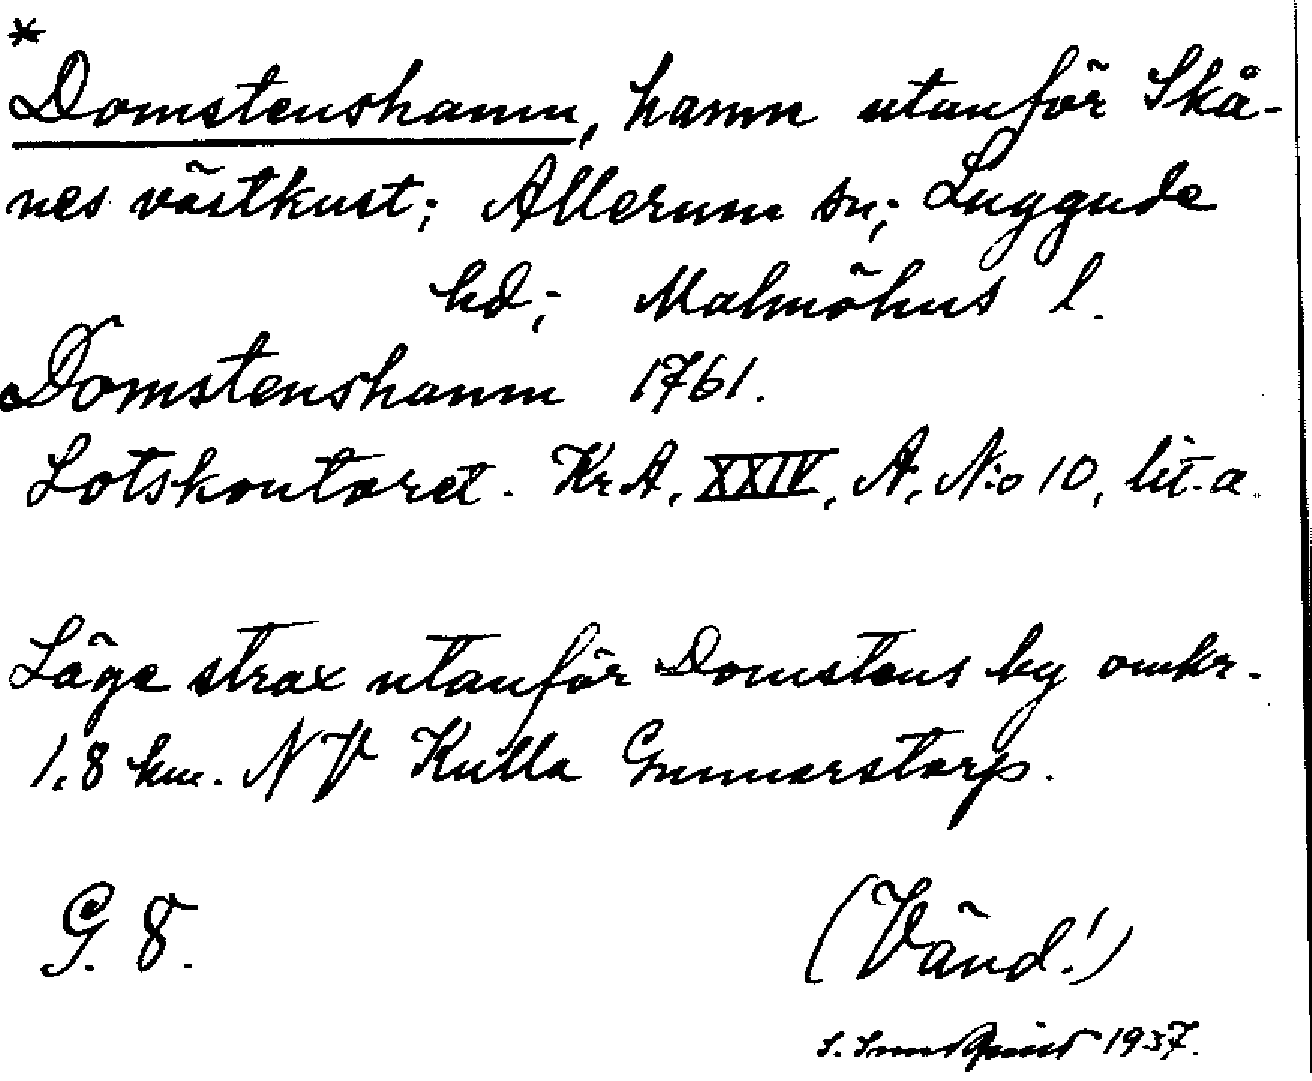 *
Domstenshamn, hamn utanför Skå-
nes västkust; Allerum sn; Luggude
hd; Malmöhus l.
Domstenshamn 1761.
Lotskontoret. Kr.A, XXIV, A, N:o 10, lit. a.
Läge strax utanför Domstens by omkr.
1,8 km. NV Kulla Gunnarstorp.
G. 8.
(Vänd!)
S. Sundquist 1937.